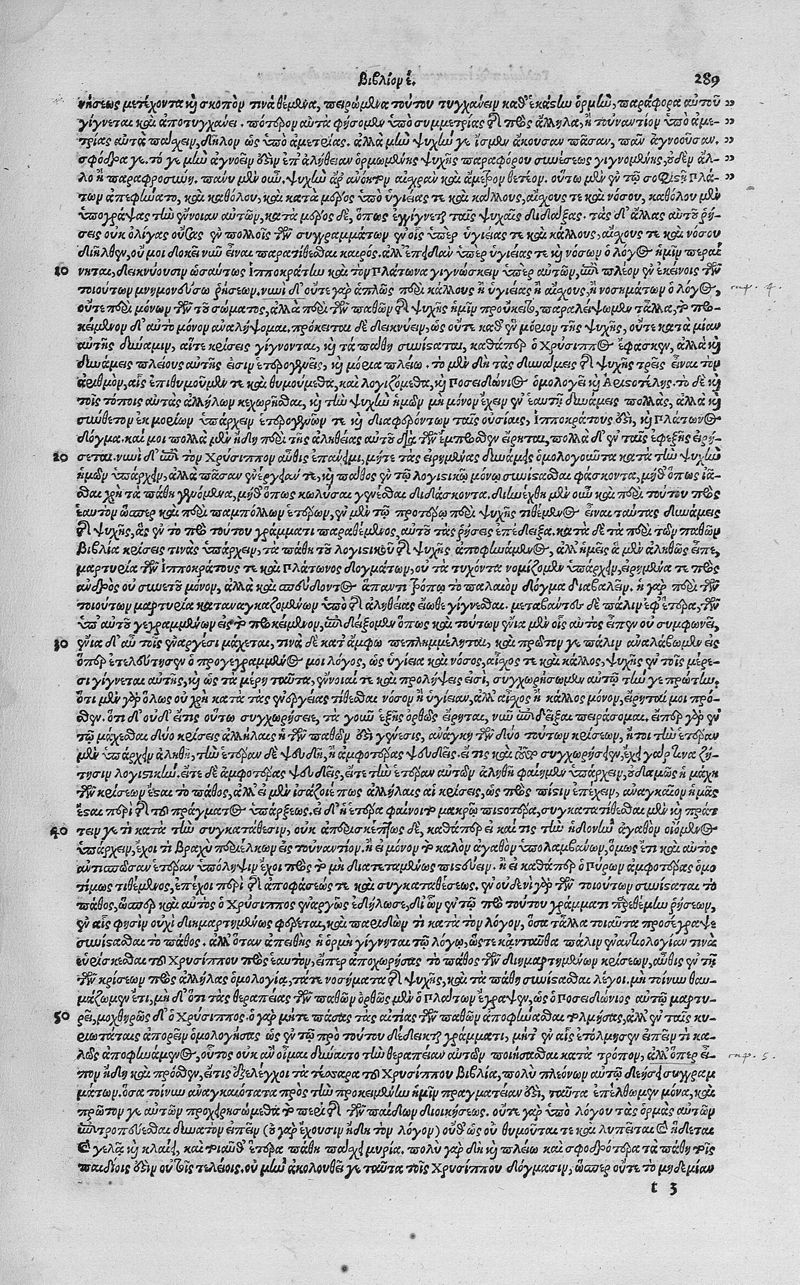 Βιβλίον έ. 289
κινήσεως μετέχοντα καὶ σκοπόν τινα θέμενα, πειρώμενα τούτου τυγχάνειν καθ' ἑκάστην ὁρμὴν, παράφορα αὐτοῦ »
γίγνεται καὶ ἀποτυγχάνει. πότερον αὐτὰ φήσομεν ὑπὸ συμμετρίας τῆς πρὸς ἄλληλα, ἢ τοὐναντίον ὑπὸ ἀμε- »
τρίας αὐτὰ πάσχειν, δῆλον ὡς ὑπὸ ἀμετρίας. ἀλλὰ μὴν ψυχήν γε ἴσμεν ἄκουσαν πᾶσαν, πᾶν ἀγνοοῦσαν. »
σφόδρα γε. τό γε μὴν ἀγνοεῖν ἐστιν ἐπ' ἀλήθειαν ὁρμωμένης ψυχῆς παραφόρου συνέσεως γιγνομένης, οὐδὲν ἄλ- »
λο ἢ παραφροσύνη. πάνυ μὲν οὖν. ψυχὴν ἄρ' ἀνόητον αἰσχρὰν καὶ ἄμετρον θετέον. οὕτω μὲν ἐν τῷ σοφιστῇ Πλά-
των ἀπεφήνατο, καὶ καθόλου, καὶ κατὰ μέρος ὑπὲρ ὑγιείας τε καὶ κάλλους, αἴσχους τε καὶ νόσου, καθόλου μὲν
ὑπογράψας τὴν ἔννοιαν αὐτῶν, κατὰ μέρος δὲ, ὅπως ἐγγίνεται ταῖς ψυχαῖς διδάξας. τὰς δ' ἄλλας αὐτοῦ ῥή-
σεις οὐκ ὀλίγας οὔσας ἐν πολλοῖς τῶν συγγραμμάτων ἐν οἷς ὑπὲρ ὑγιείας τε καὶ κάλλους, αἴσχους τε καὶ νόσου
διῆλθεν, οὔ μοι δοκεῖ νῦν εἶναι παρατίθεσθαι καιρός. ἀλλ' ἐπειδὰν ὑπὲρ ὑγιείας τε καὶ νόσων ὁ λόγος ἡμῖν περαί
10 νηται, δεικνύουσιν ὡσαύτως Ἱπποκράτην καὶ τὸν Πλάτωνα γιγνώσκειν ὑπὲρ αὐτῶν, ἐπὶ πλέον ἐν ἐκείνοις τῶν
τοιούτων μνημονεύσω ῥήσεων. νυνὶ δ' οὔτε γὰρ ἁπλῶς περὶ κάλλους ἢ ὑγιείας ἢ αἴσχους, ἢ νοσημάτων ὁ λόγος, cap. 4.
οὔτε περὶ μόνων τῶν τοῦ σώματος, ἀλλὰ περὶ τῶν παθῶν τῆς ψυχῆς ἡμῖν προὔκειτο, παραλείψωμεν τἄλλα, τὸ προ-
κείμενον δ' αὐτὸ μόνον ἀναλήψομαι. πρόκειται δὲ δεικνύειν, ὡς οὔτε καθ' ἓν μόριον τῆς ψυχῆς, οὔτε κατὰ μίαν
αὐτῆς δύναμιν, αἵτε κρίσεις γίγνονται, καὶ τὰ πάθη συνίσταται, καθάπερ ὁ Χρύσιππος ἔφασκεν, ἀλλὰ καὶ
δυνάμεις πλείους αὐτῆς εἰσιν ἑτερογενεῖς, καὶ μόρια πλείω. τὸ μὲν δὴ τὰς δυνάμεις τῆς ψυχῆς τρεῖς εἶναι τὸν
ἀριθμὸν, αἷς ἐπιθυμοῦμέν τε καὶ θυμούμεθα, καὶ λογιζόμεθα, καὶ Ποσειδώνιος ὁμολογεῖ καὶ Ἀριστοτέλης. τὸ δὲ καὶ
τοῖς τόποις αὐτὰς ἀλλήλων κεχωρῆσθαι, καὶ τὴν ψυχὴν ἡμῶν μὴ μόνον ἔχειν ἐν ἑαυτῇ δυνάμεις πολλὰς, ἀλλὰ καὶ
σύνθετον ἐκ μορίων ὑπάρχειν ἑτερογενῶν τε καὶ διαφερόντων ταῖς οὐσίαις, Ἱπποκράτους ἐστὶ, καὶ Πλάτωνος
δόγμα. καί μοι πολλὰ μὲν ἤδη περὶ τῆς ἀληθείας αὐτοῦ διὰ τῶν ἔμπροσθεν εἴρηται, πολλὰ δ' ἐν ταῖς ἐφεξῆς εἰρή-
20 σεται. νυνὶ δ' ἐπὶ τὸν Χρύσιππον αὖθις ἐπάνειμι, μήτε τὰς εἰρημένας δυνάμεις ὁμολογοῦντα κατὰ τὴν ψυχὴν
ἡμῶν ὑπάρχειν, ἀλλὰ πᾶσαν ἐνέργειάν τε, καὶ πάθος ἐν τῷ λογιστικῷ μόνῳ συνίστασθαι φάσκοντα, μήθ' ὅπως ἰᾶ-
σθαι χρὴ τὰ πάθη γενόμενα, μήθ' ὅπως κωλῦσαι γενέσθαι διδάσκοντα. διήχθη μὲν οὖν καὶ περὶ τούτου πρὸς
ἑαυτὸν ὥσπερ καὶ περὶ παμπόλλων ἑτέρων, ἐν μὲν τῷ προτέρῳ περὶ ψυχῆς τιθέμενος εἶναι ταύτας δυνάμεις
τῆς ψυχῆς, ἃς ἐν τῷ πρὸ τούτου γράμματι παραθέμενος, αὐτοῦ τὰς ῥήσεις ἐπέδειξα. κατὰ δὲ τὰ περὶ τῶν παθῶν
βιβλία κρίσεις τινὰς ὑπάρχειν, τὰ πάθη τοῦ λογιστικοῦ τῆς ψυχῆς ἀποφηνάμενος, ἀλλ' ἡμεῖς ἃ μὲν ἀληθῶς εἶπε,
μαρτύρια τῶν Ἱπποκράτους τε καὶ Πλάτωνος δογμάτων, οὐ τὰ τυχόντα νομίζομεν ὑπάρχειν, εἰρημένα τε πρὸς
ἀνδρὸς οὐ συνετοῦ μόνον, ἀλλὰ καὶ σπεύδοντος ἅπαντι τρόπῳ τὸ παλαιὸν δόγμα διαβαλεῖν. ἡ γὰρ περὶ τῶν
τοιούτων μαρτυρία καταναγκαζομένων ὑπὸ τῆς ἀληθείας εἴωθε γίγνεσθαι. μεταβάντες δὲ πάλιν ἐφ' ἕτερα, τῶν
ὑπ' αὐτοῦ γεγραμμένων εἰς τὸ προκείμενον, ἐπιδείξομεν ὅπως καὶ τούτων ἔνια μὲν οἷς αὐτὸς εἶπεν οὐ συμφωνεῖ,
30 ἔνια δ' αὖ τοῖς ἐναργέσι μάχεται, τινὰ δὲ κατ' ἄμφω πεπλημμέληται, καὶ πρῶτόν γε πάλιν ἀναλάβωμεν εἰς
ὅπερ ἐτελεύτησεν ὁ προγεγραμμένος μοι λόγος, ὡς ὑγίεια καὶ νόσος, αἶσχός τε καὶ κάλλος, ψυχῆς ἐν τοῖς μέρε-
σι γίγνεται αὐτῆς, καὶ ὡς τὰ μέρη ταῦτα, ἔννοιαί τε καὶ προλήψεις εἰσὶ, συγχωρήσωμεν αὐτῷ τήν γε πρώτην.
ὅτι μὲν γὰρ ὅλως οὐ χρὴ κατὰ τὰς ἐνεργείας τίθεσθαι νόσον ἢ ὑγίειαν, ἀλλ' αἶσχος ἢ κάλλος μόνον, εἴρηταί μοι πρό-
σθεν. ὅτι δ' οὐδ' εἴ τις οὕτω συγχωρήσειε, τὰ γοῦν ἑξῆς ὀρθῶς εἴρηται, νῦν ἐπιδεῖξαι πειράσομαι. εἴπερ γὰρ ἐν
τῷ μάχεσθαι δύο κρίσεις ἀλλήλαις ἡ τῶν παθῶν ἐστι γένεσις, ἀνάγκη τῶν δύο τούτων κρίσεων, ἤτοι τὴν ἑτέραν
μὲν ὑπάρχειν ἀληθῆ, τὴν ἑτέραν δὲ ψευδῆ, ἢ ἀμφοτέρας ψευδεῖς. εἰ τις καὶ τοῦτο συγχωρήσειεν, ἔχει γάρ τινα ζή-
τησιν λογιστικήν. εἴτε δὲ ἀμφοτέρας ψευδεῖς, εἴτε τὴν ἑτέραν αὐτῶν ἀληθῆ φαίημεν ὑπάρχειν, οὐδαμῶς ἡ μάχη
τῶν κρίσεων ἔσται τὸ πάθος, ἀλλ' εἰ μὲν ἰσάζοιέν πως ἀλλήλαις αἱ κρίσεις, ὡς πρὸς πίστιν ἐπέχειν, ἀναγκαῖον ἡμᾶς
ἔσται περὶ τῆς τοῦ πράγματος ὑπάρξεως. εἰ δ' ἡ ἑτέρα φαίνοιτο μακρῷ πιστοτέρα, συγκατατίθεσθαι μὲν καὶ πράτ
40 τειν γέ τι κατὰ τὴν συγκατάθεσιν, οὐκ ἀπερισκέπτως δὲ, καθάπερ εἰ καί τις τὴν ἡδονὴν ἀγαθὸν οἰόμενος
ὑπάρχειν, ἔχοι τι βραχὺ περιέλκων εἰς τοὐναντίον. ἢ εἰ μόνον τὸ καλὸν ἀγαθὸν ὑπολαμβάνων, ὅμως ἔτι καὶ αὐτὸς
ἀντισπῶσαν ἑτέραν ὑπόληψιν ἔχοι πρὸς τὸ μὴ διατεταμένως πιστεύειν. ἢ εἰ καθάπερ ὁ Πύρρων ἀμφοτέρας ὁμο
τίμως τιθέμενος, ἐπέχοι περὶ τῆς ἀποφάσεώς τε καὶ συγκαταθέσεως. ἐν οὐδενὶ γὰρ τῶν τοιούτων συνίσταται τὸ
πάθος, ὥσπερ καὶ αὐτὸς ὁ Χρύσιππος ἐναργῶς ἐδήλωσε, δι' ὧν ἐν τῷ πρὸ τούτου γράμματι παρεθέμην ῥήσεων,
ἐν αἷς φησιν οὐχὶ διημαρτημένως φέρεται, καὶ παριδών τι κατὰ τὸν λόγον, ὅσα τἄλλα τοιαῦτα προσέγραψε
συνίστασθαι τὸ πάθος. ἀλλ' ὅταν ἀπειθὴς ἡ ὁρμὴ γίγνηται τῷ λόγῳ, ὥστε κἀνταῦθα πάλιν ἐναντιολογίαν τινὰ
εὑρίσκεσθαι τοῦ Χρυσίππου πρὸς ἑαυτὸν, εἴπερ ἀποχωρήσας τὸ πάθος τῶν διημαρτημένων κρίσεων, αὖθις ἐν τῇ
τῶν κρίσεων πρὸς ἀλλήλας ὁμολογίᾳ, τά τε νοσήματα τῆς ψυχῆς, καὶ τὰ πάθη συνίστασθαι λέγοι. μὴ τοίνυν θαυ-
μάζωμεν ἔτι, μὴ δ' ὅτι τὰς θεραπείας τῶν παθῶν ὀρθῶς μὲν ὁ Πλάτων ἔγραψεν, ὡς ὁ Ποσειδώνιος αὐτῷ μαρτυ-
50 ρεῖ, μοχθηρῶς δ' ὁ Χρύσιππος. ὁ γὰρ μήτε πάσας τὰς αἰτίας τῶν παθῶν ἀποφήνασθαι τολμήσας, ἀλλ' ἐν ταῖς κυ-
ριωτάταις ἀπορεῖν ὁμολογήσας ὡς ἐν τῷ πρὸ τούτου δέδεικται γράμματι, μήτ' ἐν αἷς ἐτόλμησεν εἰπεῖν τι κα-
λῶς ἀποφηνάμενος, οὗτος οὐκ ἂν οἶμαι δύναιτο τὴν θεραπείαν αὐτῶν ποιήσασθαι κατὰ τρόπον, ἀλλ' ὅπερ εἶ- cap. 5.
πον ἤδη καὶ πρόσθεν, εἴ τις ἐξελέγχοι τὰ τέσσαρα τοῦ Χρυσίππου βιβλία, πολὺ πλεόνων αὐτῷ δεήσει συγγραμ
μάτων. ὅσα τοίνυν ἀναγκαιότατα πρὸς τὴν προκειμένην ἡμῖν πραγματείαν ἐστὶ, ταῦτα ἐπέλθωμεν μόνα, καὶ
πρῶτόν γε αὐτῶν προχειρησώμεθα τὸ περὶ τῆς τῶν παίδων διοικήσεως. οὔτε γὰρ ὑπὸ λόγου τὰς ὁρμὰς αὐτῶν
ἐπιτροπεύεσθαι δυνατὸν εἰπεῖν (οὐ γὰρ ἔχουσιν ἤδη τὸν λόγον) οὐθ' ὡς οὐ θυμοῦταί τε καὶ λυπεῖται καὶ ἥδεται
καὶ γελᾷ καὶ κλαίει, καὶ τοιαῦθ' ἕτερα πάθη πάσχει μυρία. πολὺ γὰρ δὴ καὶ πλείω καὶ σφοδρότερα τὰ πάθη τοῖς
παιδίοις ἐστὶν ἢ τοῖς τελείοις. οὐ μὴν ἀκολουθεῖ γε ταῦτα τοῖς Χρυσίππου δόγμασιν, ὥσπερ οὔτε τὸ μηδεμίαν
t 3